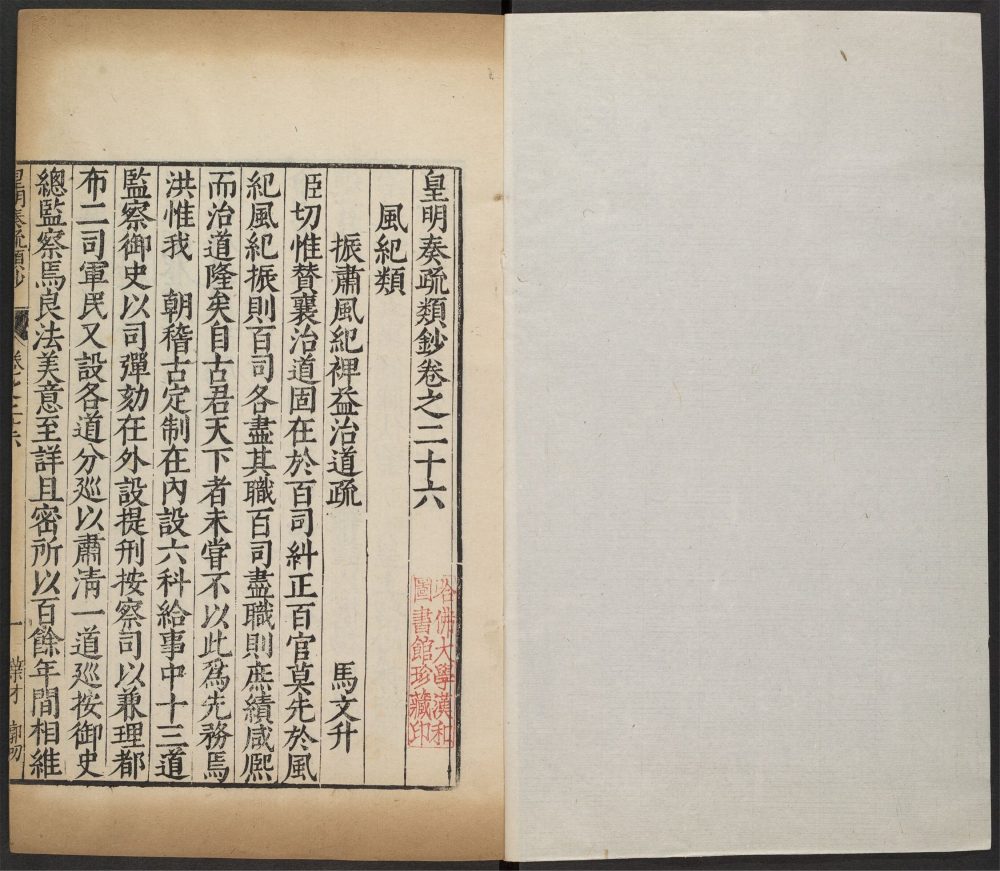 皇明奏疏類鈔卷之二十六
風紀類
振肅風紀裨益治道疏 馬文升
臣切惟賛襄治道固在於百司糾正百官莫先於風
紀風紀振則百司各盡其職百司盡職則庶績咸熈
而治道隆矣自古君天下者未嘗不以此爲先務焉
洪惟我 朝稽古定制在內設六科給事中十三道
監察御史以司彈劾在外設提刑按察司以兼理都
布二司軍民又設各道分巡以肅清一道巡按御史
總監察焉良法美意至詳且密所以百餘年間相維
皇明奏疏類鈔 卷之二十六 一 葉才
塔佛大學漢和
圖書館珍藏印